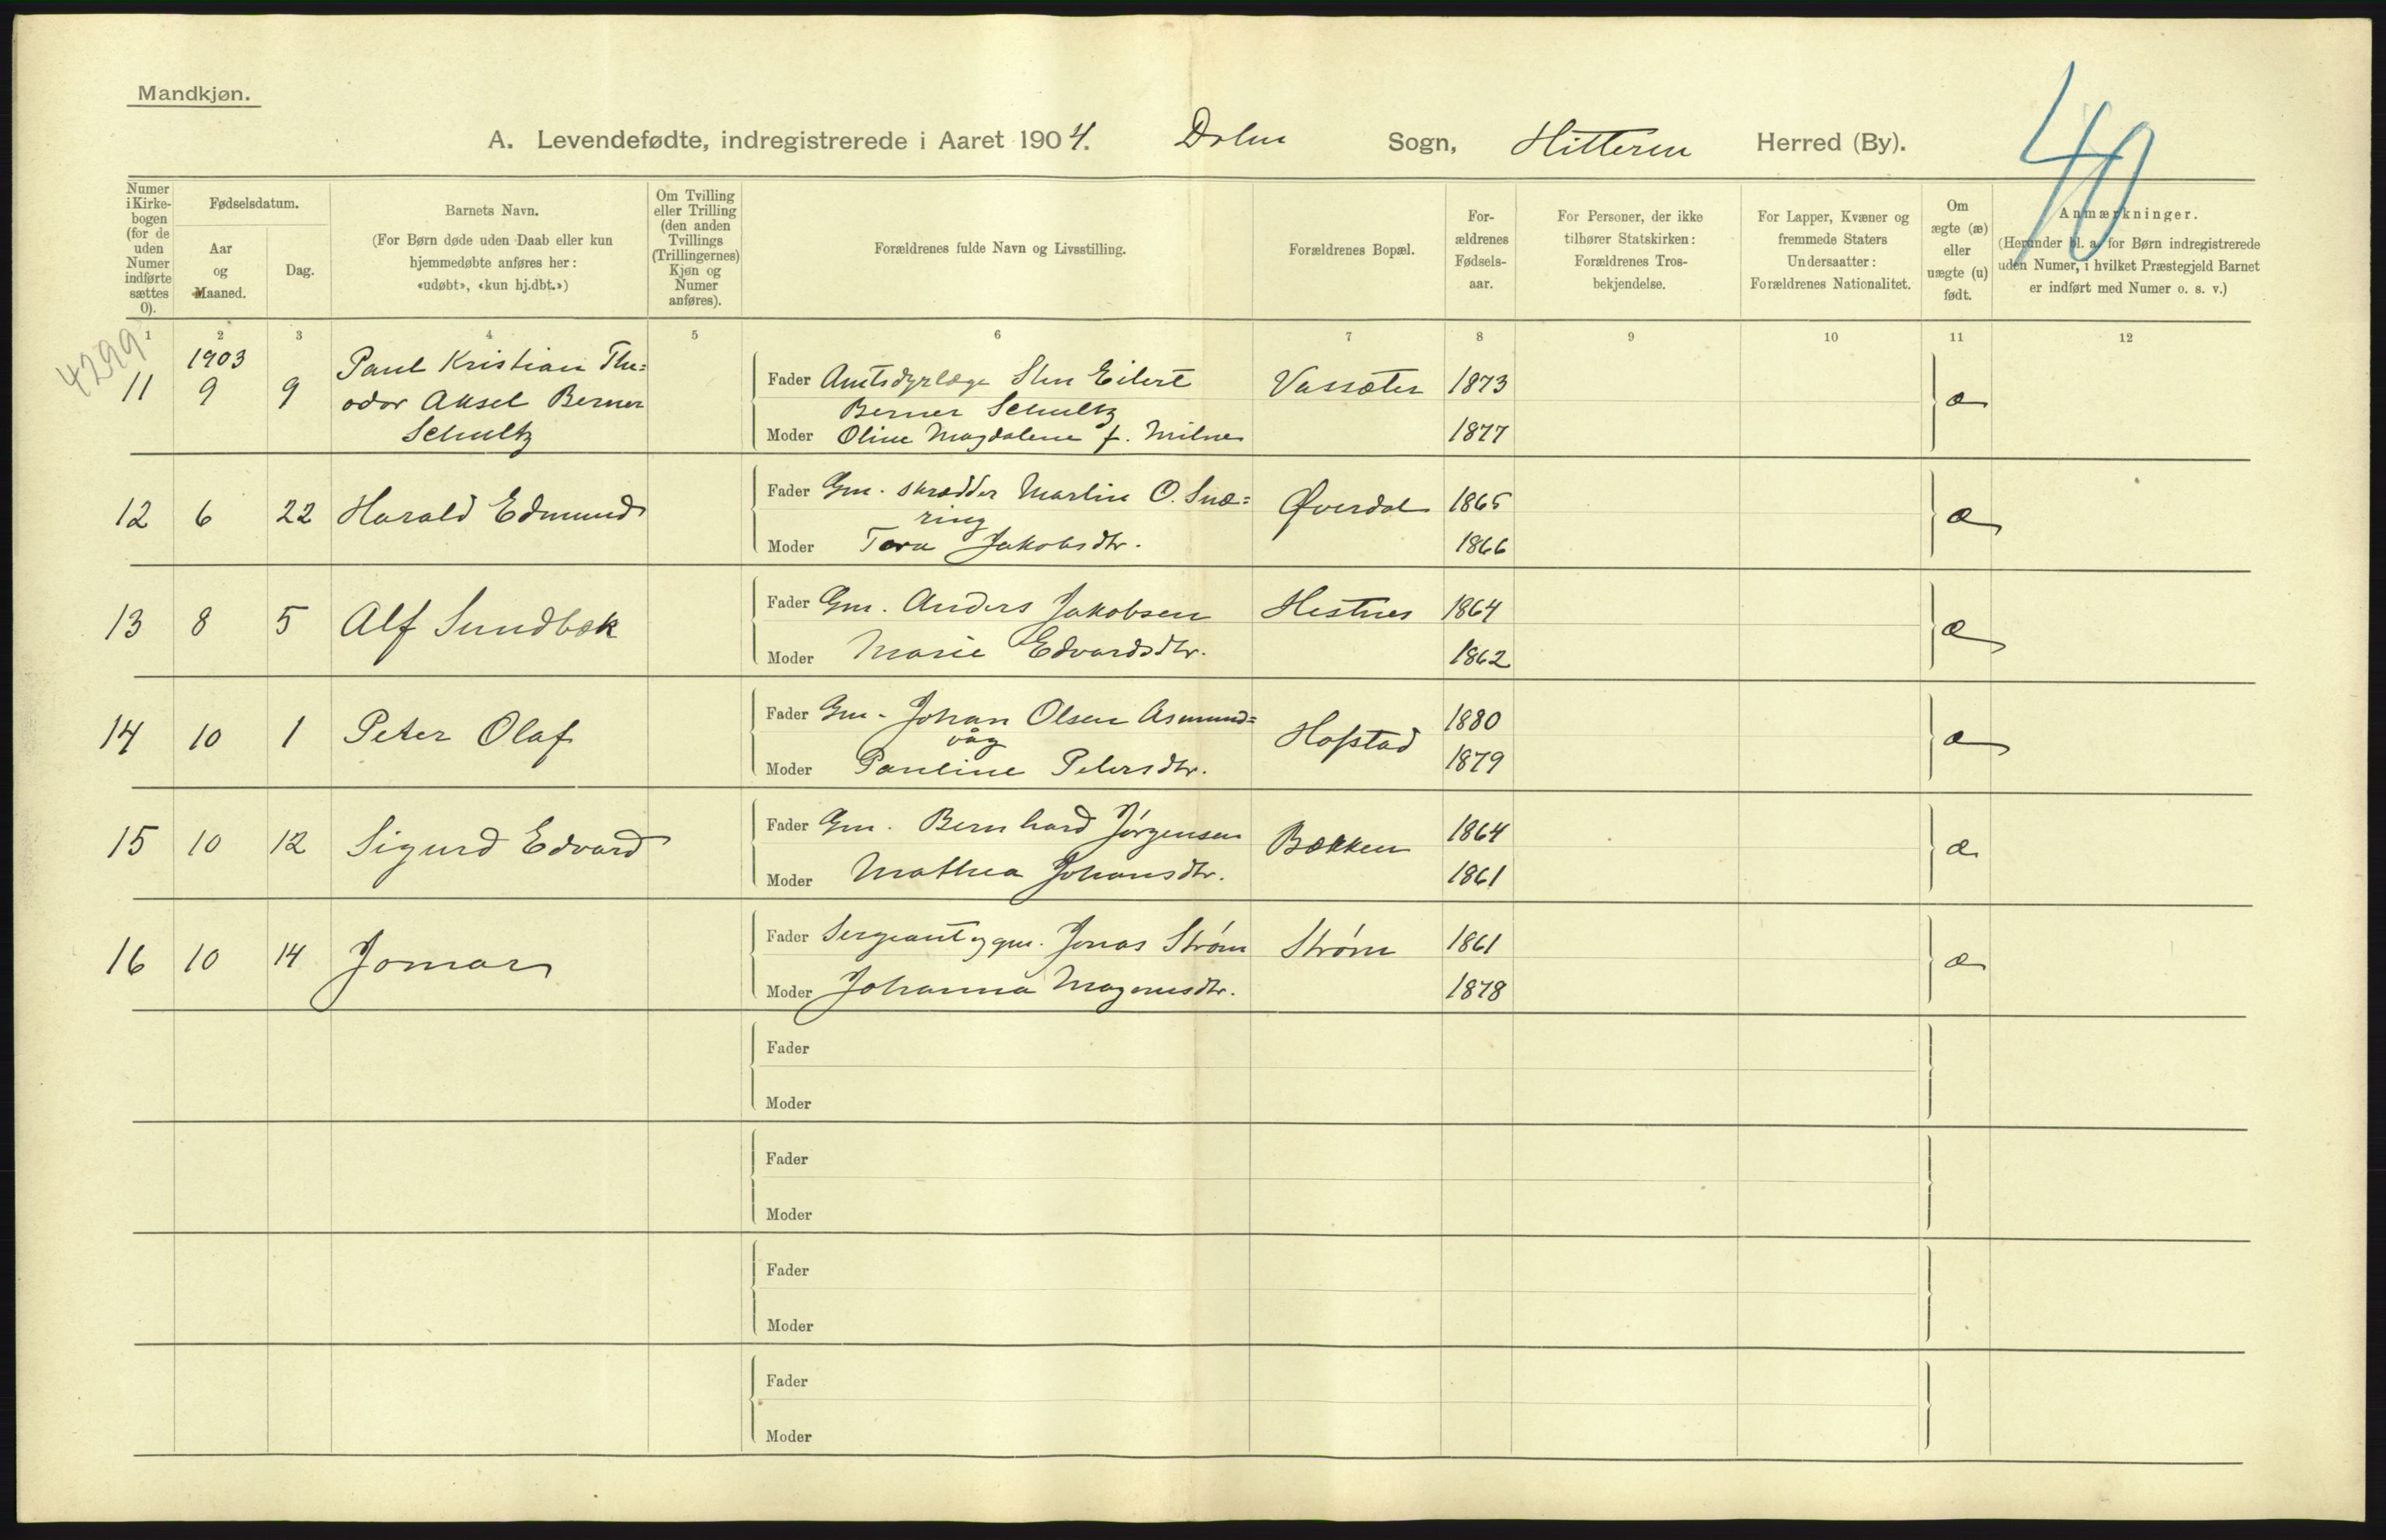 Mandkjøn.
A. Levendefødte, indregistrerede i Aaret 1904. Dolm Sogn, Hitteren Herred (By).
40
Numer i Kirke-bogen (for de uden Numer indførte sættes 0).
Fødselsdatum.
Aar og Maaned.
Dag.
Barnets Navn.
(For Børn døde uden Daab eller kun hjemmedøbte anføres her: «udøbt», «kun hj.dbt.»)
Om Tvilling eller Trilling (den anden Tvillings (Trillingernes) Kjøn og Numer anføres).
Forældrenes fulde Navn og Livsstilling.
Forældrenes Bopæl.
For-ældrenes Fødsels-aar.
For Personer, der ikke tilhører Statskirken: Forældrenes Tros-bekjendelse.
For Lapper, Kvæner og fremmede Staters Undersaatter: Forældrenes Nationalitet.
Om ægte (æ) eller uægte (u) født.
Anmærkninger.
(Herunder bl. a. for Børn indregistrerede uden Numer, i hvilket Præstegjeld Barnet er indført med Numer o. s. v.)
1 2 3 4 5 6 7 8 9 10 11 12
4299
1903
11 9 9 Paul Kristian The=
odor Aksel Berner
Schultz
Fader Amtsdyrlæge Sten Eilert Vassæter 1873 æ
Berner Schultz
Moder Oline Magdalene f. Milnes 1877
12 6 22 Harald Edmund
Fader Gm. skrædder Martin O. Snæ= Øverdal 1865 æ
ring
Moder Tora Jakobsdtr. 1866
13 8 5 Alf Sundbæk
Fader Gm. Anders Jakobsen Hestnes 1864 æ
Moder Marie Edvardsdtr. 1862
14 10 1 Peter Olaf
Fader Gm. Johan Olsen Asmund= Hofstad 1880 æ
våg
Moder Pauline Petersdtr. 1879
15 10 12 Sigurd Edvard
Fader Gm. Bernhard Jörgensen Bækken 1864 æ
Moder Mathea Johansdtr. 1861
16 10 14 Jomar
Fader Sergeant og gm. Jonas Ström Ström 1861 æ
Moder Johanna Magnusdtr. 1878
Fader
Moder
Fader
Moder
Fader
Moder
Fader
Moder